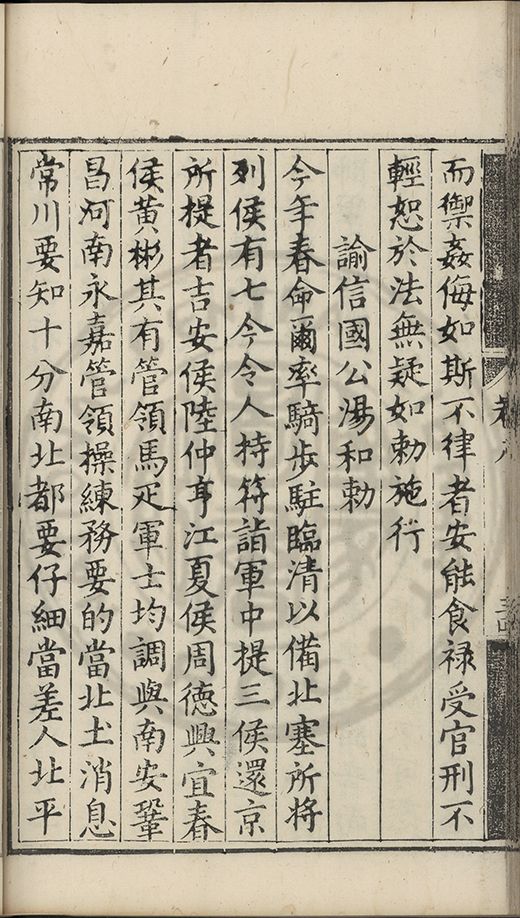 而禦姦侮如斯不律者安能食禄受官刑不
輕恕於法無疑如勅施行
諭信國公湯和勅
今年春命爾率騎步駐臨清以備北塞所將
列侯有七今令人持符詣軍中提三侯還京
所提者吉安侯陸仲亨江夏侯周德興宜春
侯黄彬其有管領馬疋軍士均調與南安鞏
昌河南永嘉管領操練務要的當北土消息
常川要知十分南北都要仔細當差人北平
卷八